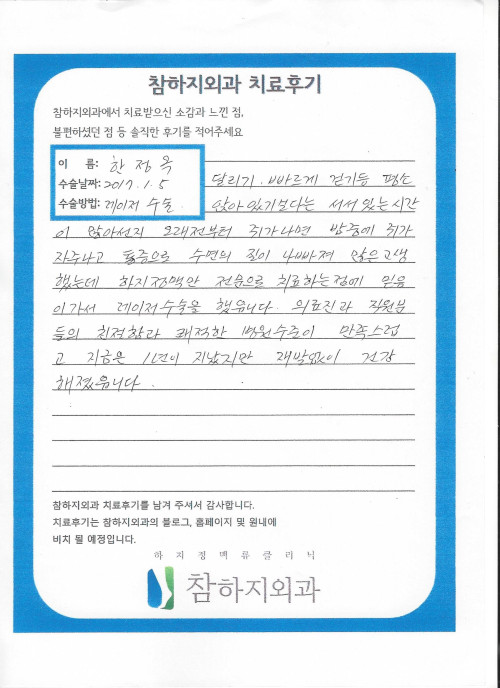 참하지외과 치료후기
참하지외과에서 치료받으신 소감과 느낀 점,
불편하셨던 점 등 솔직한 후기를 적어주세요
이 름: 한정옥
수술날짜: 2017.1.5
수술방법: 레이저 수술
달리기. 빠르게 걷기등 평소
앉아있기보다는 서서 있는 시간
이 많아선지 오래전부터 쥐가나면 밤중에 쥐가
자주나고 통증으로 수면의 질이 나빠져 많은고생
했는데 하지정맥만 전용으로 치료하는점에 믿음
이가서 레이저수술을 했읍니다. 의료진과 직원분
들의 친절함과 쾌적한 병원수준이 만족스럽
고 지금은 1년이 지났지만 재발없이 건강
해졌읍니다.
참하지외과 치료후기를 남겨 주셔서 감사합니다.
치료후기는 참하지외과의 블로그, 홈페이지 및 원내에
비치 될 예정입니다.
하지정맥류클리닉
참하지외과